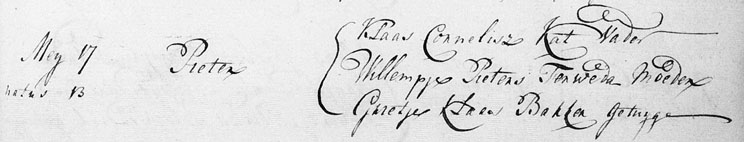 Mey 17 Pieter
natus 13
Klaas Cornelisz Kat Vader
Willempje Pieters Tenweda Moeder
Guertje Klaas Bakker getuyge